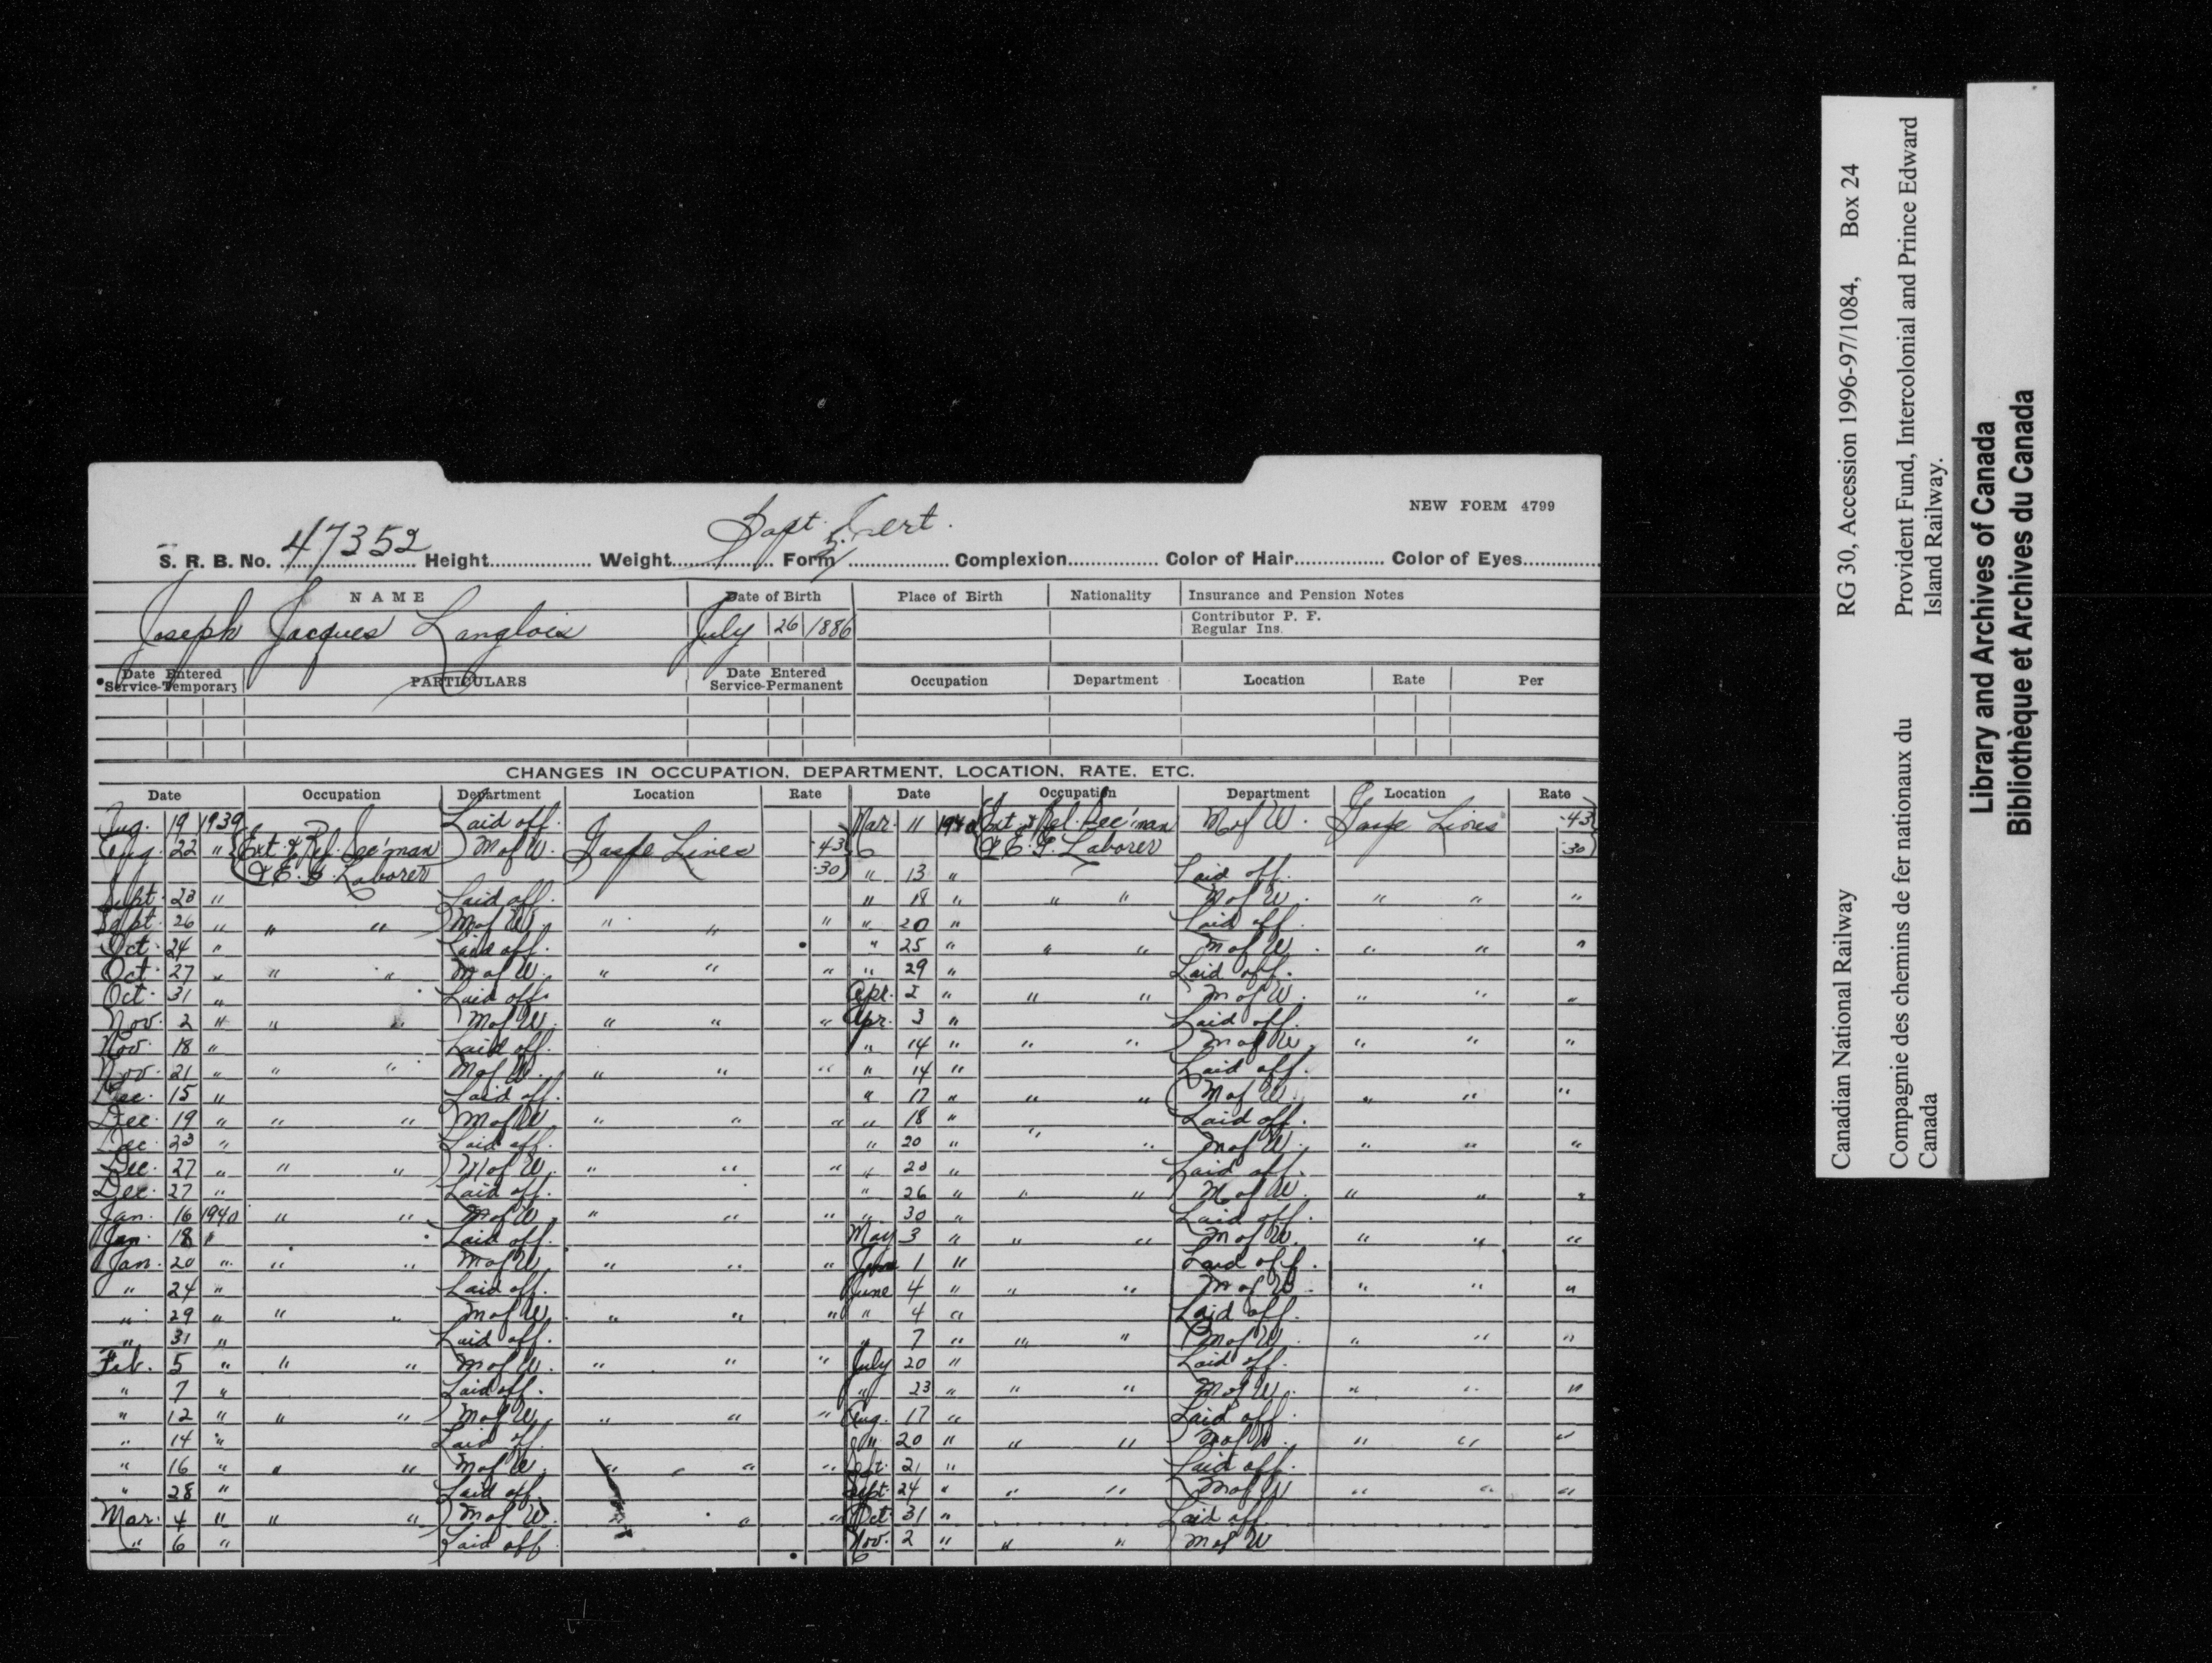 NEW FORM 4799
Bapt. Cert.
S. R. B. No. 47352 Height Weight Form Complexion Color of Hair Color of Eyes
NAME Date of Birth Place of Birth Nationality Insurance and Pension Notes
Joseph Jacques Langlois July 26 1886 Contributor P. F.
Regular Ins.
Date Entered Service-Temporary PARTICULARS Date Entered Service-Permanent Occupation Department Location Rate Per
CHANGES IN OCCUPATION, DEPARTMENT, LOCATION, RATE, ETC.
Date Occupation Department Location Rate Date Occupation Department Location Rate
Aug. 19 1939 Laid off.
Aug. 22 " Ext. & Rel. Sec'man M of W. Gaspe Lines .43
& E. G. Laborer .30
Sept. 23 " Laid off.
Sept. 26 " " " M of W. " " "
Oct. 24 " Laid off.
Oct. 27 " " " M of W. " " "
Oct. 31 " Laid off.
Nov. 2 " " " M of W. " " "
Nov. 18 " Laid off.
Nov. 21 " " " M of W. " " "
Dec. 15 " Laid off.
Dec. 19 " " " M of W " " "
Dec. 23 " Laid off.
Dec. 27 " " " M of W. " " "
Dec. 27 " Laid off.
Jan. 16 1940 " " M of W. " " "
Jan. 18 " Laid off.
Jan. 20 " " " M of W. " " "
" 24 " Laid off.
" 29 " " " M of W. " " "
" 31 " Laid off.
Feb. 5 " " " M of W. " " "
" 7 " Laid off.
" 12 " " " M of W. " " "
" 14 " Laid off.
" 16 " " " M of W. " " "
" 28 " Laid off.
Mar. 4 " " " M of W. " "
" 6 " Laid off
Mar. 11 1940 Ext. & Rel. Sec'man M of W. Gaspe Lines .43
& E. G. Laborer .30
" 13 " Laid off.
" 18 " " " M of W. " " "
" 20 " Laid off.
" 25 " " " M of W. " " "
" 29 " Laid off.
Apr. 2 " " " M of W. " " "
Apr. 3 " Laid off.
" 14 " " " M of W. " " "
" 14 " Laid off.
" 17 " " " M of W. " " "
" 18 " Laid off.
" 20 " " " M of W. " " "
" 20 " Laid off.
" 26 " " " M of W. " " "
" 30 " Laid off.
May 3 " " " M of W. " " "
June 1 " Laid off.
June 4 " " " M of W. " " "
" 4 " Laid off.
" 7 " " " M of W. " " "
July 20 " Laid off.
" 23 " " " M of W. " " "
Aug. 17 " Laid off.
" 20 " " " M of W. " " "
Sept. 21 " Laid off.
Sept. 24 " " " M of W " " "
Oct. 31 " Laid off.
Nov. 2 " " " M of W
Canadian National Railway RG 30, Accession 1996-97/1084, Box 24
Compagnie des chemins de fer nationaux du Provident Fund, Intercolonial and Prince Edward
Canada Island Railway.
Library and Archives of Canada
Bibliothèque et Archives du Canada